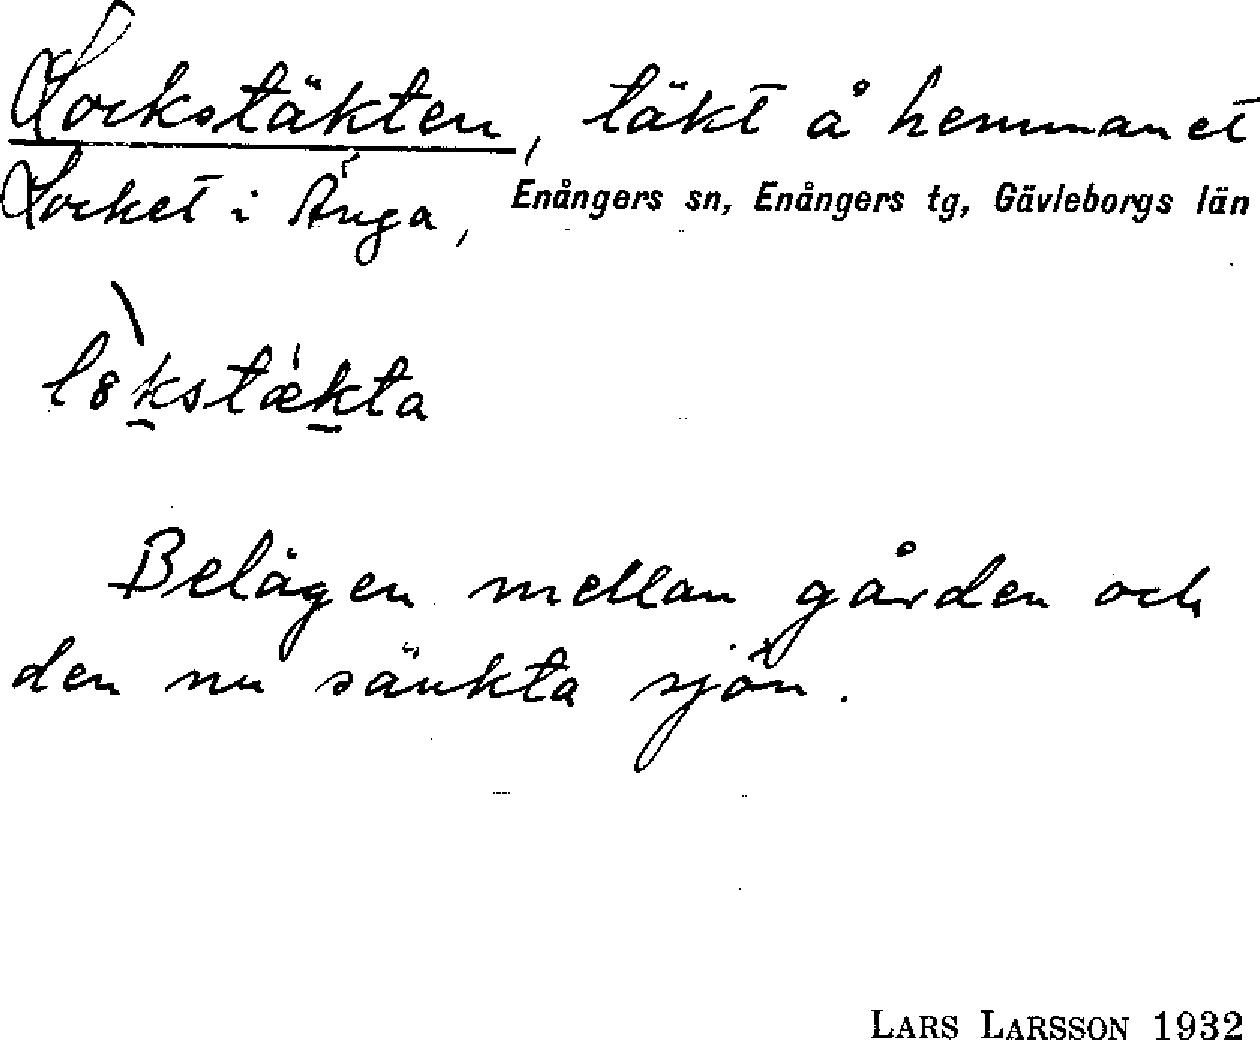 Lockstäkten, täkt å hemmanet
Locket i Änga, Enångers sn, Enångers tg, Gävleborgs län
lòkstækta
Belägen mellan gården och
den nu sänkta sjön.
LARS LARSSON 1932